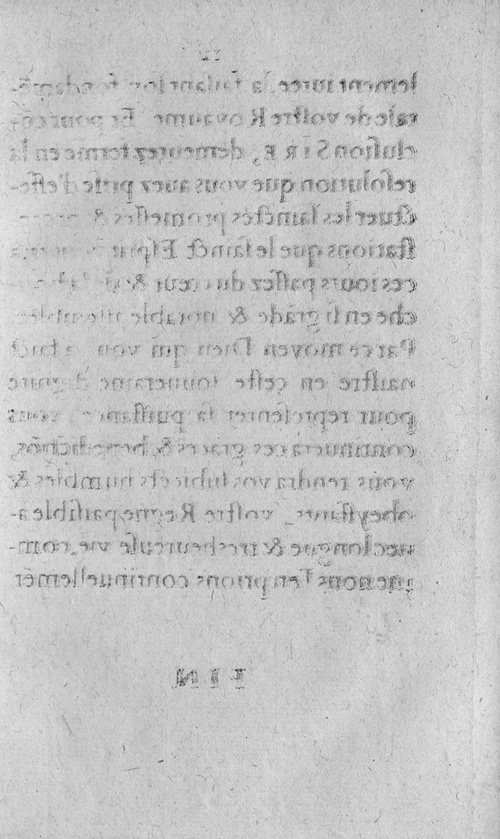 12
lement iuree, la faisant loy fondamē-
tale de vostre Royaume. Et pour cō-
clusion SIRE, demeurez ferme en la
resolution que vous auez prise d'effe-
ctuer les sainctes promesses &
stations que le sainct Esprit
ces iours passez du cœur & de la bou-
che en si grāde & notable assemblee.
Par ce moyen Dieu qui vous a faict
naistre en ceste souueraine dignité
pour representer sa puissance, vous
continuera ces graces & benedictiōs,
vous rendra vos subiects humbles &
obeyssants, vostre Regne paisible a-
uec longue & tresheureuse vie, com-
me nous l'en prions continuellemēt
FIN